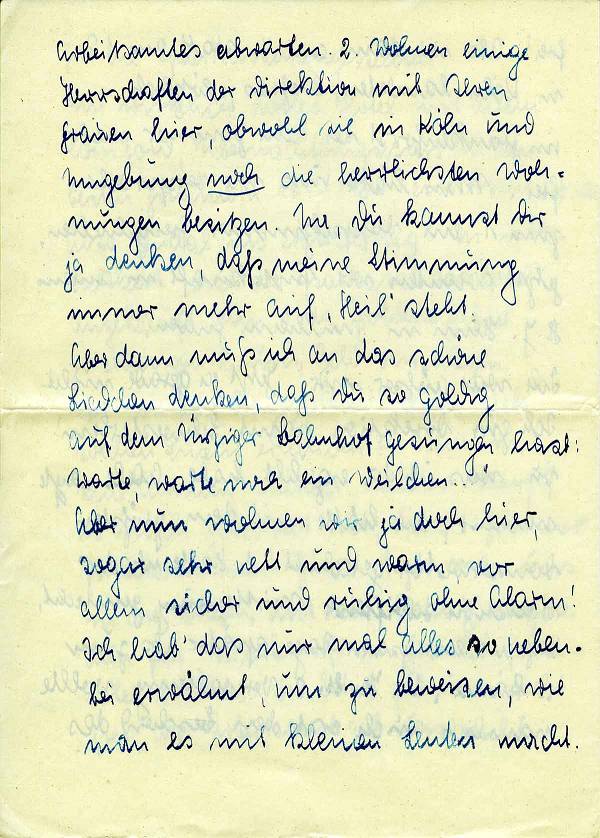 Arbeitsamtes abwarten. 2. Wohnen einige
Herrschaften der Direktion mit deren
Frauen hier, obwohl sie in Köln und
Umgebung noch die herrlichsten Woh-
nungen besitzen. Na, Du kannst Dir
ja denken, daß meine Stimmung
immer mehr auf "Heil" steht.
Aber dann muß ich an das schöne
Liedchen denken, daß Du so goldig
auf dem Ürziger Bahnhof gesungen hast:
Warte, warte noch ein Weilchen..."
Aber nun wohnen wir ja doch hier,
sogar sehr nett und warm, vor
allem sicher und ruhig ohne Alarm!
Ich hab' das nur mal alles so neben-
bei erwähnt, um zu beweisen, wie
man es mit kleinen Leuten macht.